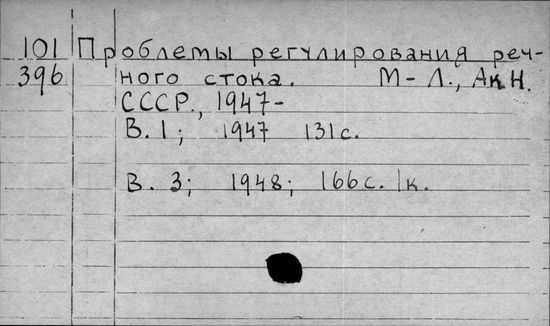 101 Проблемы регулирования реч-
396 ного стока. М-Л., Ак.Н.
СССР., 1947-
В. 1; 1947 131 с.
В. 3; 1948; 166 с. 1к.